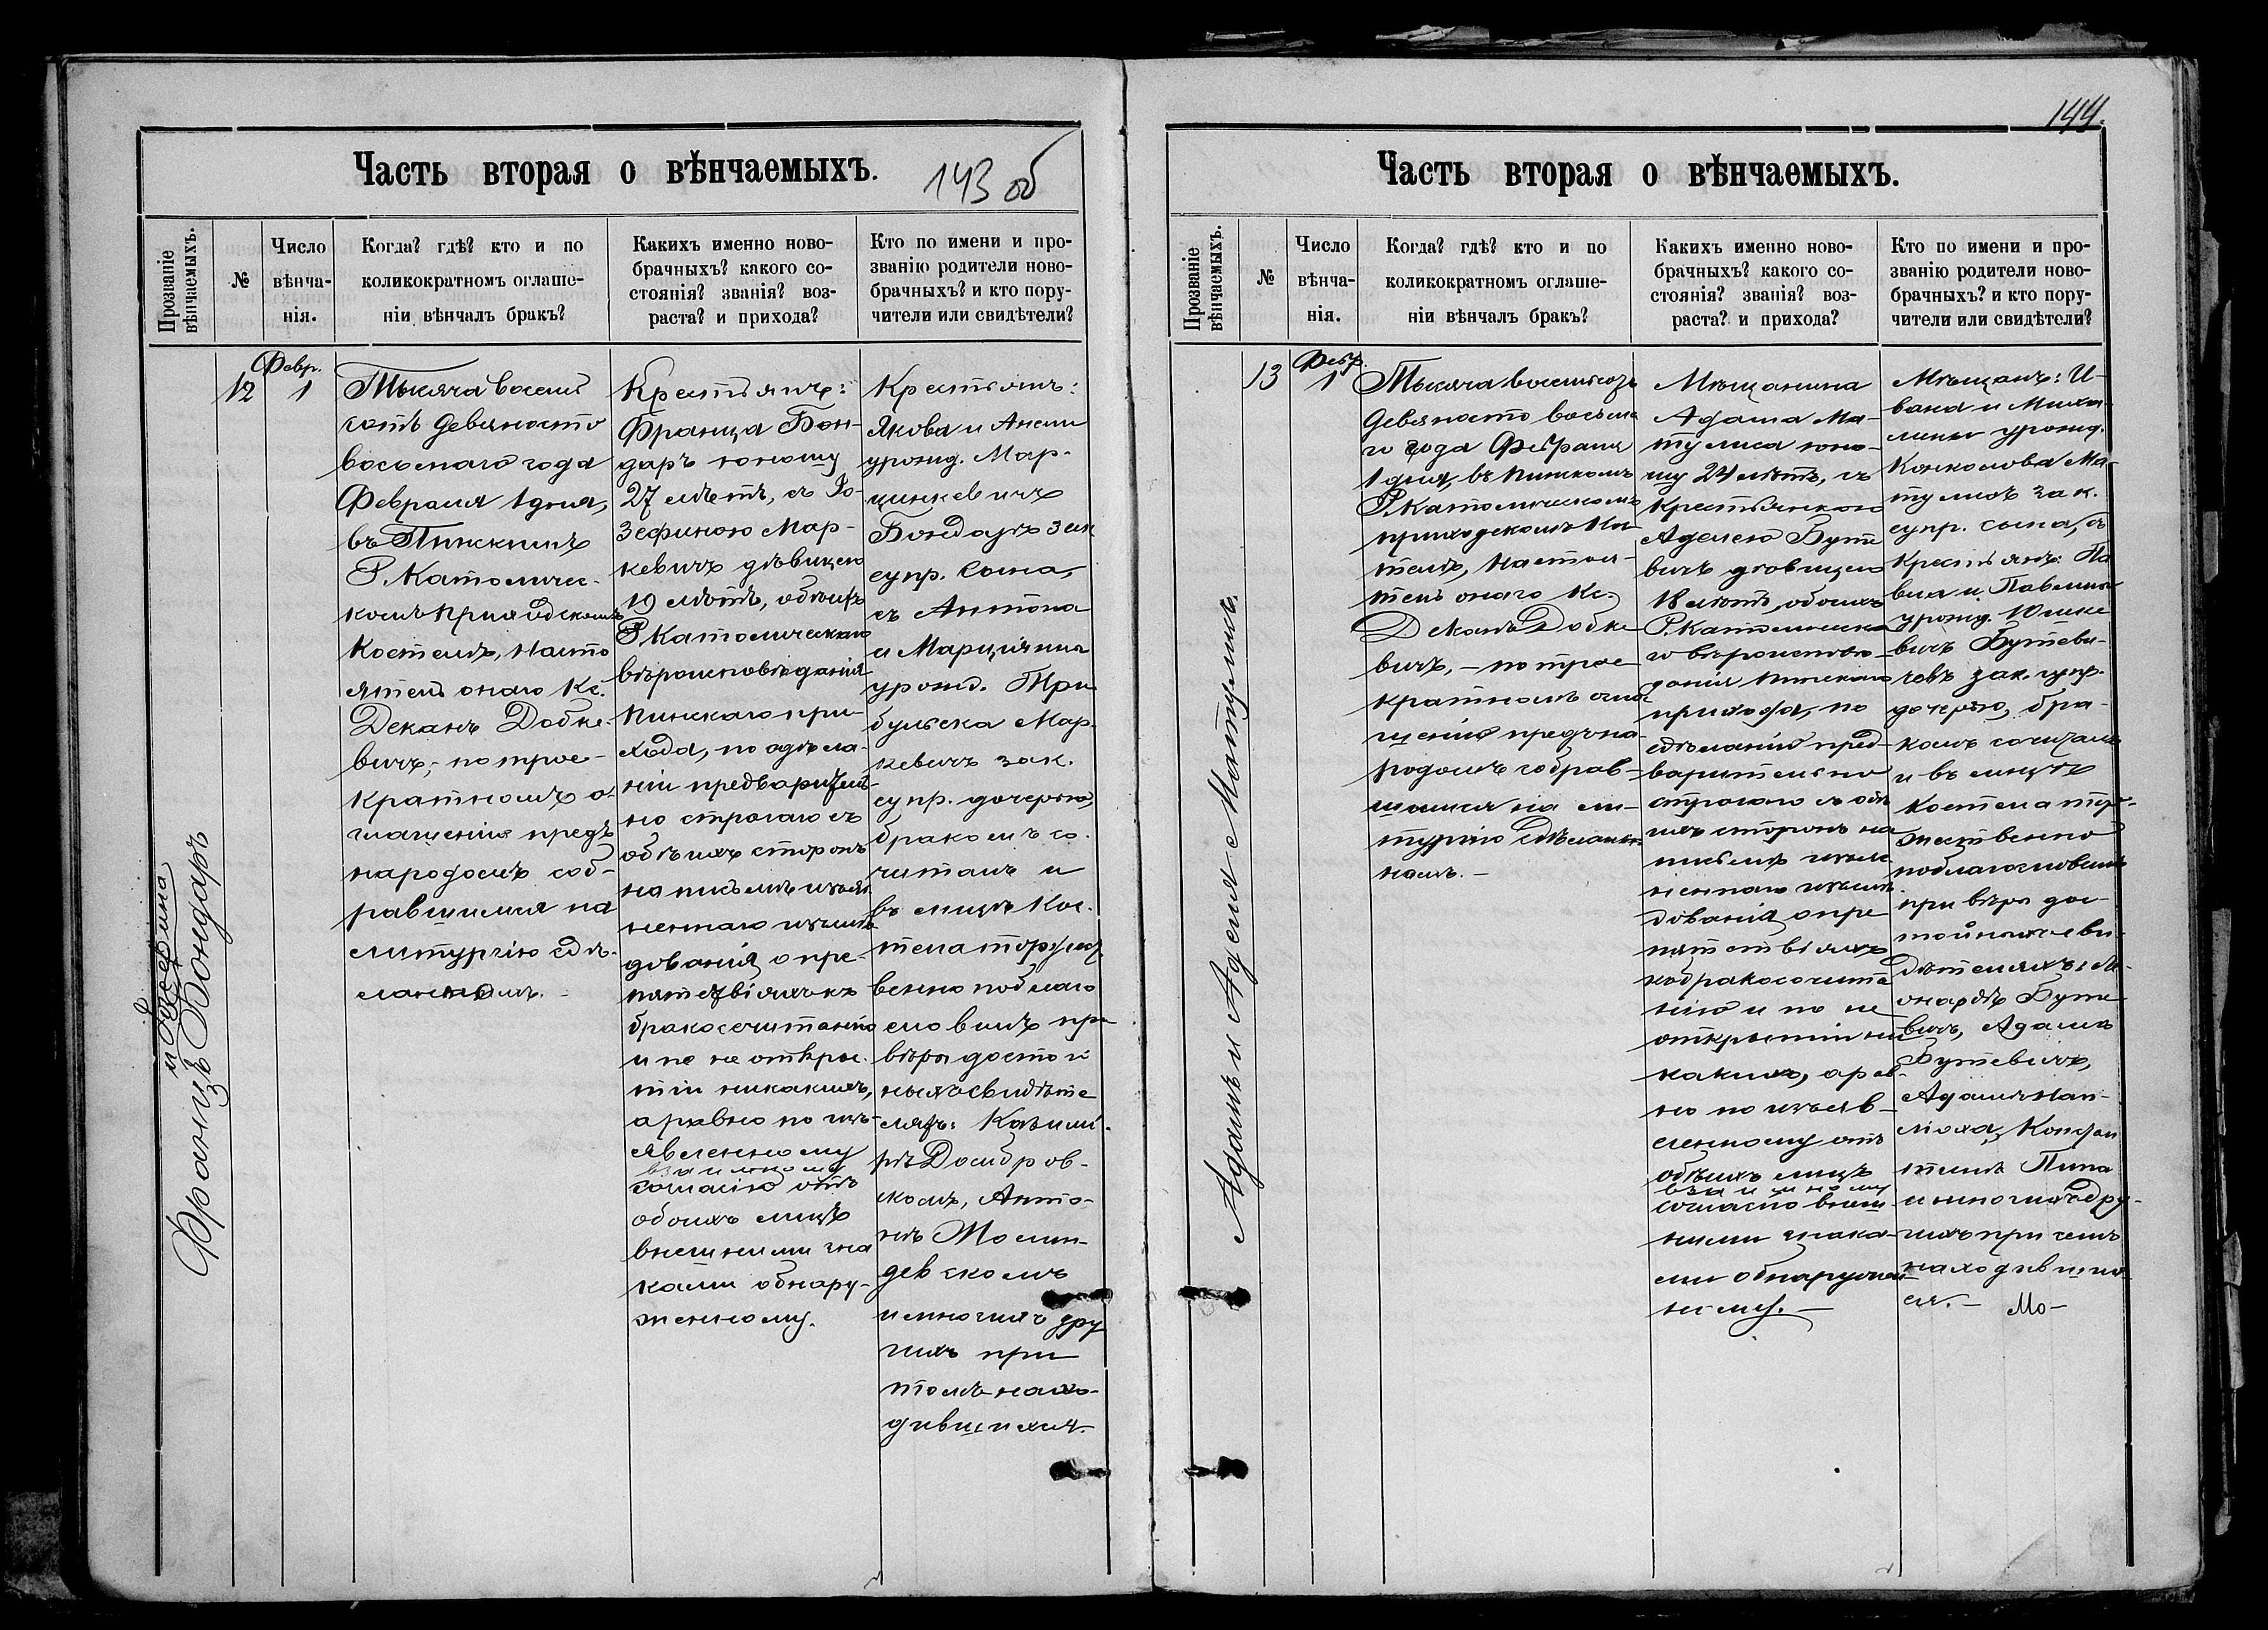 144.
Часть вторая о вѣнчаемыхъ.
143 об
Прозваніе вѣнчаемыхъ.
№
Число
вѣнча-
нія.
Когда? гдѣ? кто и по
коликократномъ оглаше-
ніи вѣнчалъ бракъ?
Какихъ именно ново-
брачныхъ? какого со-
стоянія? званія? воз-
раста? и прихода?
Кто по имени и про-
званію родители ново-
брачныхъ? и кто пору-
чители или свидѣтели?
Францъ Бондаръ
12
Февр.
1
Тысяча восемь
сотъ девяносто
восьмаго года
Февраля 1 дня,
въ Пинскимъ
Р. Католичес-
комъ приходскомъ
Костелѣ, Насто
ятель онаго Кс.
Деканъ Добке-
вичъ, - по трое-
кратномъ о-
глашеніи предъ
народомъ соб-
равшимся на
литургію сдѣ-
ланномъ. -
Крестьянъ:
Франца Бон-
даръ юношу
27 лѣтъ, съ Іо-
зефиною Мар-
кевичъ дѣвицею
19 лѣтъ, обоихъ
Р. Католическаго
вѣроисповѣданія
Пинскаго при-
хода, по одѣла-
ніи предварител-
но строгаго съ
обѣихъ сторонъ
на письмѣ изъяс
неннаго изслѣ
дованія о пре-
пятствіяхъ къ
бракосочитанію
и по не откры-
тіи никакихъ,
а равно по изъ-
явленному
взаимному
согласію отъ
обоихъ лицъ
внешними зна
ками обнару-
женному.
Крестьянъ:
Якова и Анели
урожд. Мар-
цинкевичъ
Бондаръ зак
супр. сына,
съ Антона
и Марціянны
урожд. Три
бульска Мар-
кевичъ зак.
супр. дочерью,
бракомъ со-
читалъ и
въ лицѣ Кос-
тела торжест
венно поблаго
словилъ при
вѣры достой
ныхъ свидѣте
ляхъ: Казими-
рѣ Домбров-
скомъ, Анто-
нѣ
и многихъ дру
гихъ при
томъ нахо-
дившихся.
Часть вторая о вѣнчаемыхъ.
Прозваніе вѣнчаемыхъ.
№
Число
вѣнча-
нія.
Когда? гдѣ? кто и по
коликократномъ оглаше-
ніи вѣнчалъ бракъ?
Какихъ именно ново-
брачныхъ? какого со-
стоянія? званія? воз-
раста? и прихода?
Кто по имени и про-
званію родители ново-
брачныхъ? и кто пору-
чители или свидѣтели?
Адамъ и Аделя Матулисъ.
13
Февр.
1
Тысяча восемьсотъ
девяносто восьма
го года Февраля
1 дня, въ Пинскомъ
Р. Католическомъ
приходскомъ Кос
телѣ, Настоя-
тель онаго Кс.
Деканъ Добке
вичъ, - по трое
кратномъ огла
шеніи предъ на-
родомъ собрав-
шомся на ли-
тургію сдѣлан
номъ. -
Мѣщанина
Адама Ма-
тулиса юно-
шу 24 лѣтъ, съ
Крестьянкою
Аделею Буте
вичъ дѣвицею
18 лѣтъ, обоихъ
Р. Католическа
го вѣроисповѣ-
данія Пинскаго
прихода, по
сдѣланіи пред-
варительно
строгаго съ обѣ
ихъ сторонъ на
письмѣ изъяс
неннаго изслѣ
дованія о пре
пятствіяхъ
къ бракосочита
нію и по не
открытіи ни
какихъ, а рав-
но по изъяв-
ленному отъ
обѣихъ лицъ
взаимному
согласію внеш
ними знака-
ми обнаружен
ному. -
Мѣщанъ: И-
вана и Миха-
лины урожд.
Конколова Ма-
тулисъ зак.
супр. сына, съ
Крестьянъ: Па
вла и Павлины
урожд. Юшке
вичъ Бутеви-
човъ зак. супр.
дочерью, бра-
комъ сочиталъ
и въ лицѣ
Костела тор-
жественно
поблагословилъ
при вѣры дос-
тойныхъ сви-
дѣтеляхъ: Ле-
онардѣ Буте
вичъ, Адамъ
Бутевичъ,
и многихъ дру-
гихъ при семъ
находившихъ
ся. - Мо-